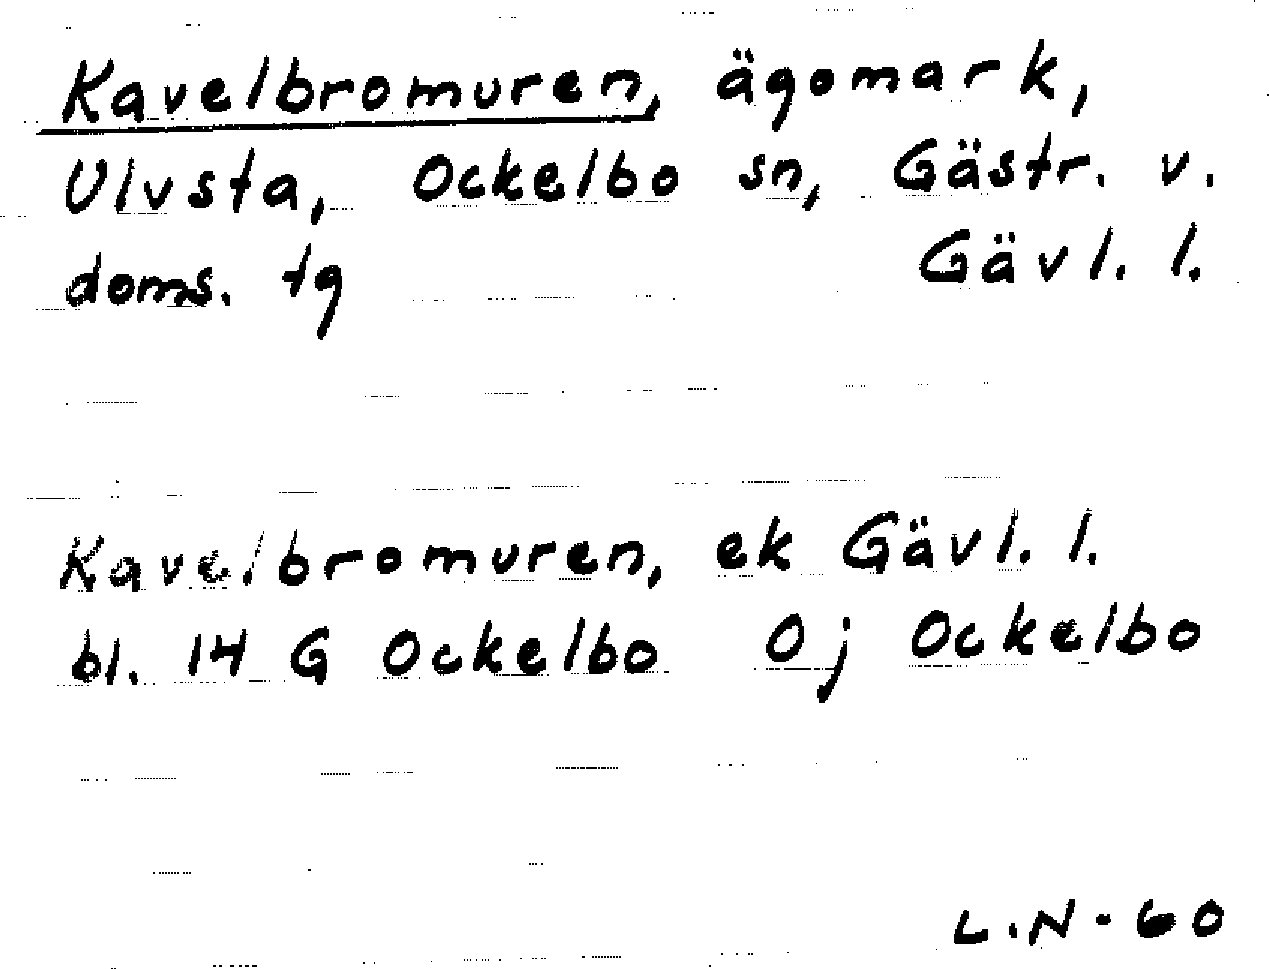 Kavelbromuren, ägomark,
Ulvsta, Ockelbo sn, Gästr. v.
doms. tg Gävl. l.
Kavelbromuren, ek Gävl. l.
bl. 14 G Ockelbo 0j Ockelbo
L.N-60